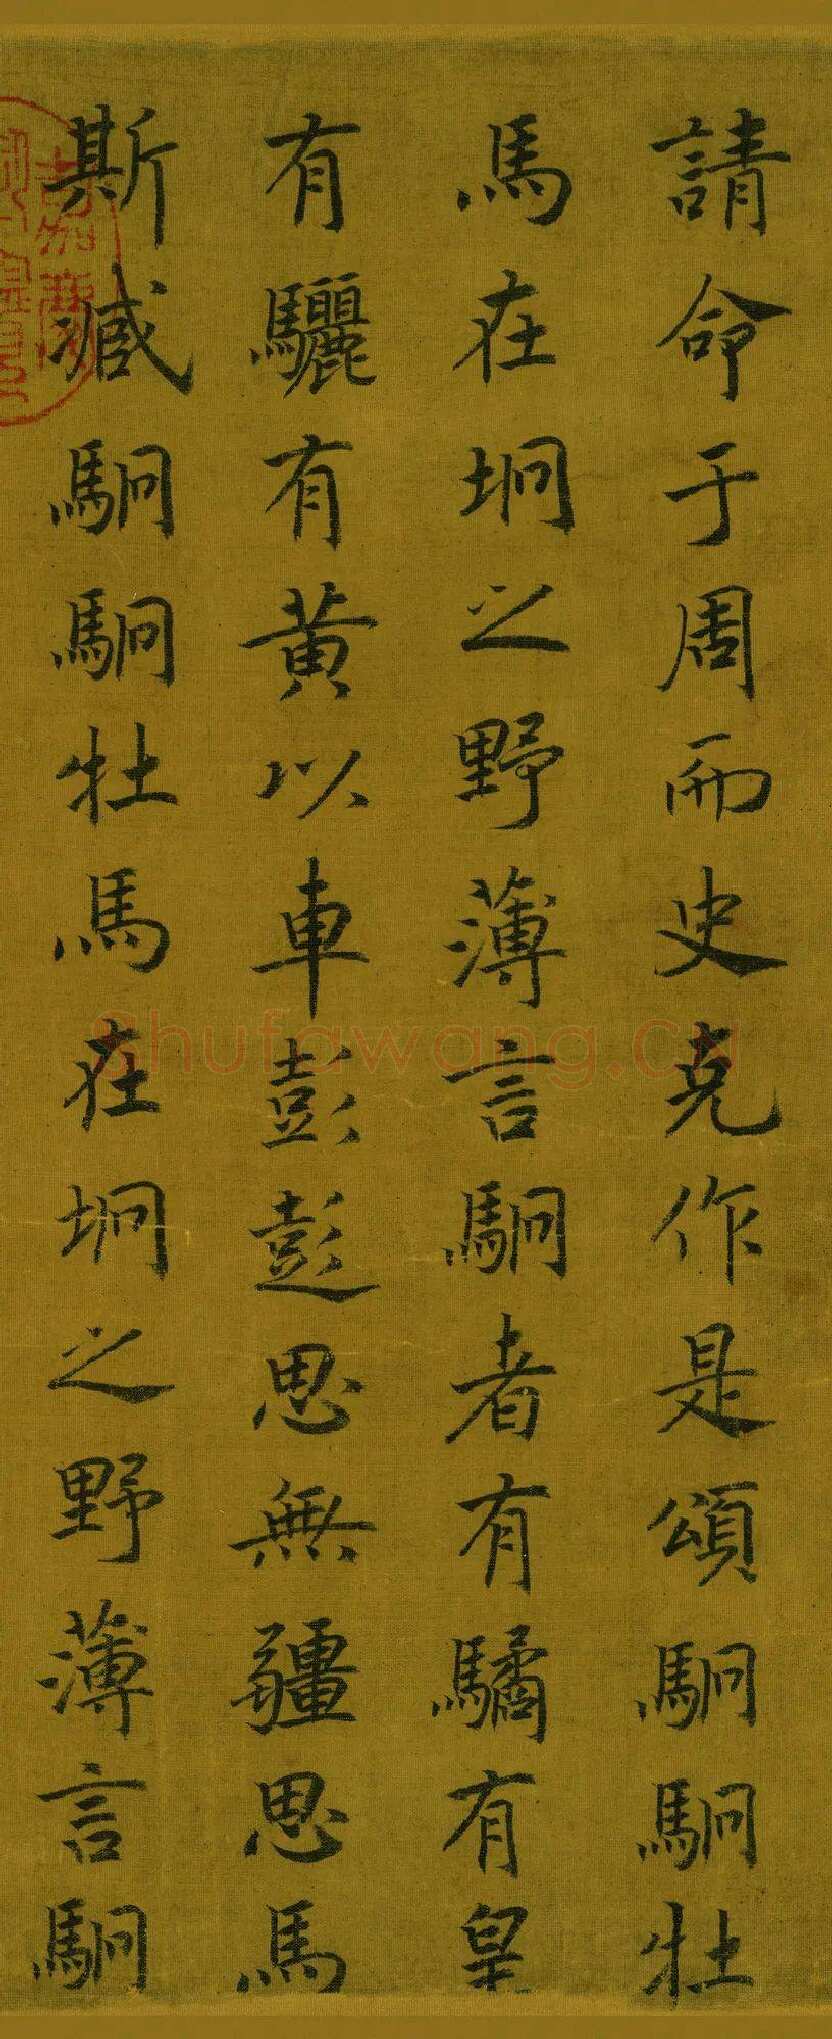 請命于周而史克作是頌駉駉牡
馬在坰之野薄言駉者有驈有皇
有驪有黃以車彭彭思無疆思馬
斯臧駉駉牡馬在坰之野薄言駉
Shufawang.CN